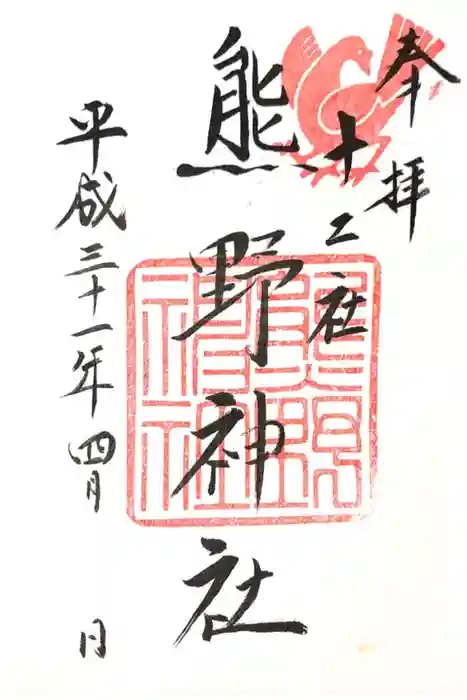 奉拝
十二社
熊野神社
平成三十一年四月 日
熊野神社